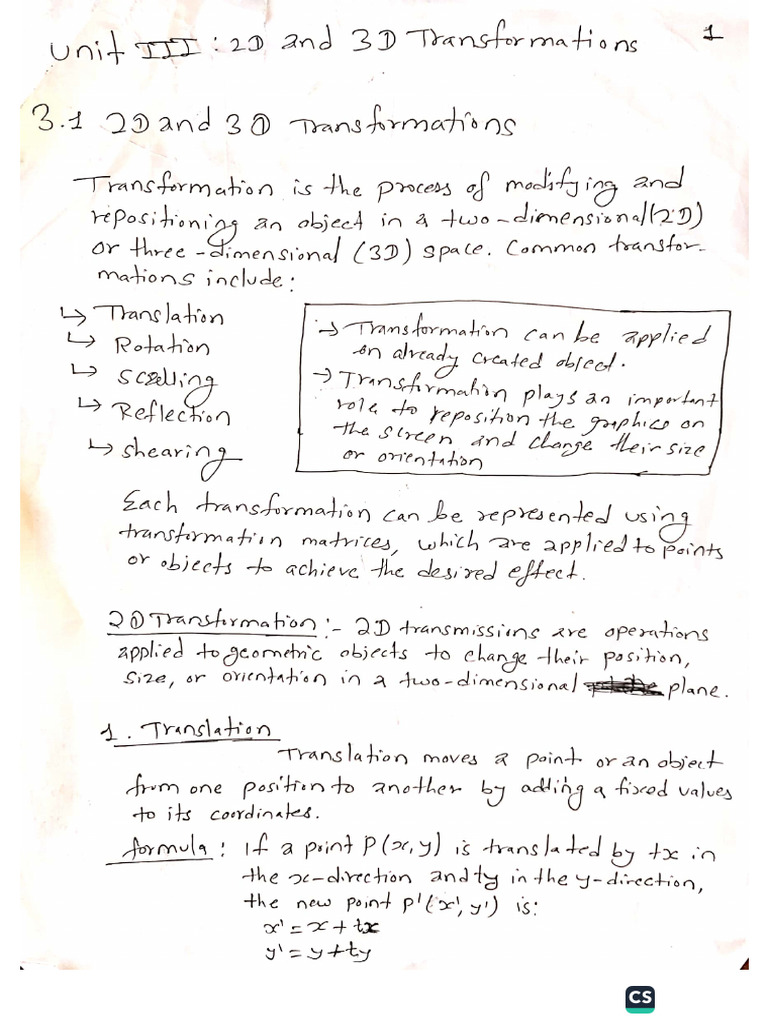 Unit III : 2D and 3D Transformations
1
3.1 2D and 3D Transformations
Transformation is the process of modifying and
repositioning an object in a two-dimensional (2D)
or three-dimensional (3D) space. Common transfor-
mations include:
↳ Translation
↳ Rotation
↳ Scalling
↳ Reflection
↳ shearing
→ Transformation can be applied
on already created object.
→ Transformation plays an important
role to reposition the graphics on
the screen and change their size
or orientation
Each transformation can be represented using
transformation matrices, which are applied to points
or objects to achieve the desired effect.
2D Transformation :- 2D transmissions are operations
applied to geometric objects to change their position,
size, or orientation in a two-dimensional plane.
1. Translation
Translation moves a point or an object
from one position to another by adding a fixed values
to its coordinates.
formula : If a point P(x,y) is translated by tx in
the x-direction and ty in the y-direction,
the new point p'(x', y') is:
x' = x + tx
y' = y + ty
CS